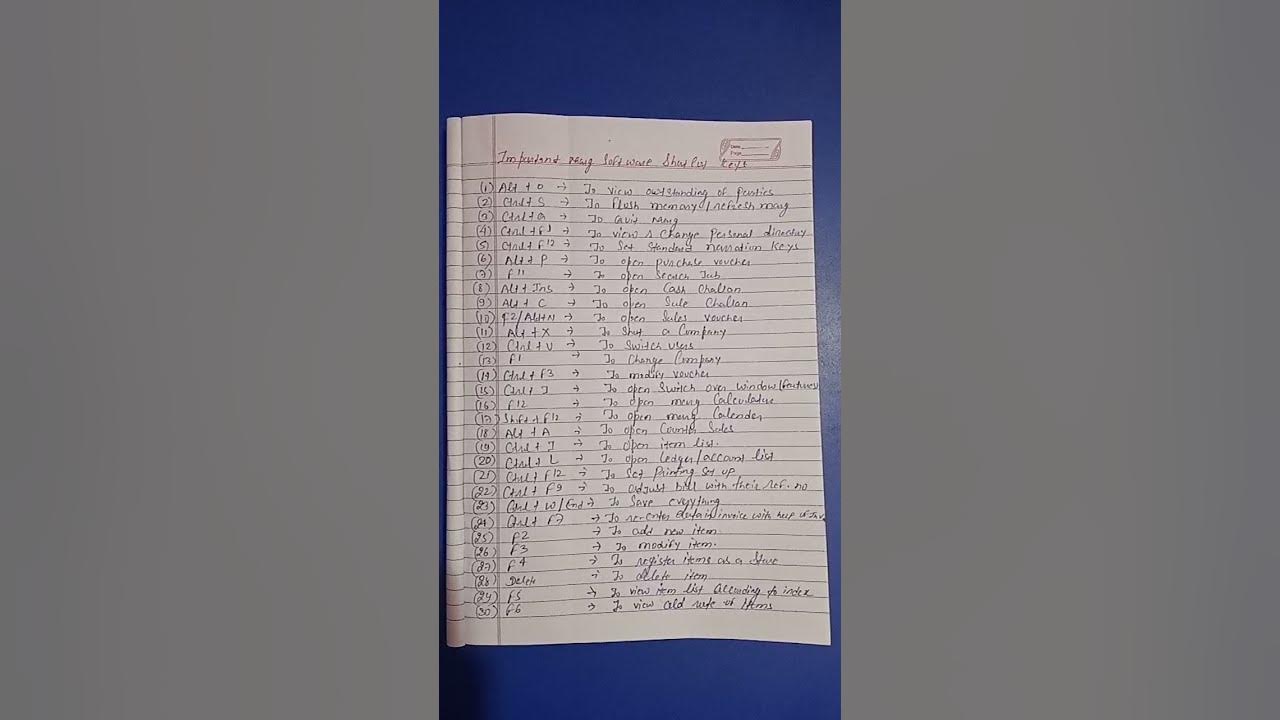 Date
Page
Important marg Software Shortcut keys
(1) Alt + O → To view outstanding of parties
(2) Ctrl + S → To flush memory/refresh marg
(3) Ctrl + Q → To Quit marg
(4) Ctrl + F1 → To view & Change Personal directory
(5) Ctrl + F12 → To Set Standard narration Keys
(6) Alt + P → To open purchase voucher
(7) F11 → To open Search Tab
(8) Alt + Ins → To open Cash Challan
(9) Alt + C → To open Sale Challan
(10) F2/Alt+N → To open Sales voucher
(11) Alt + X → To Shut a Company
(12) Ctrl + U → To Switch users
(13) F1 → To Change Company
(14) Ctrl + F3 → To modify voucher
(15) Ctrl + J → To open Switch over window/features
(16) F12 → To open marg Calculator
(17) Shift + F12 → To open marg Calender
(18) Alt + A → To open Counter Sales
(19) Ctrl + I → To open item list.
(20) Ctrl + L → To open ledger/account list
(21) Ctrl + F12 → To Set Printing Set up
(22) Ctrl + F9 → To adjust bill with their ref. no
(23) Ctrl + W/End → To Save everything
(24) Ctrl + F7 → To re-enter invoice with help of
(25) F2 → To add new item.
(26) F3 → To modify item.
(27) F4 → To register items as a
(28) Delete → To delete item
(29) F5 → To view item list According to index
(30) F6 → To view old rate of Items